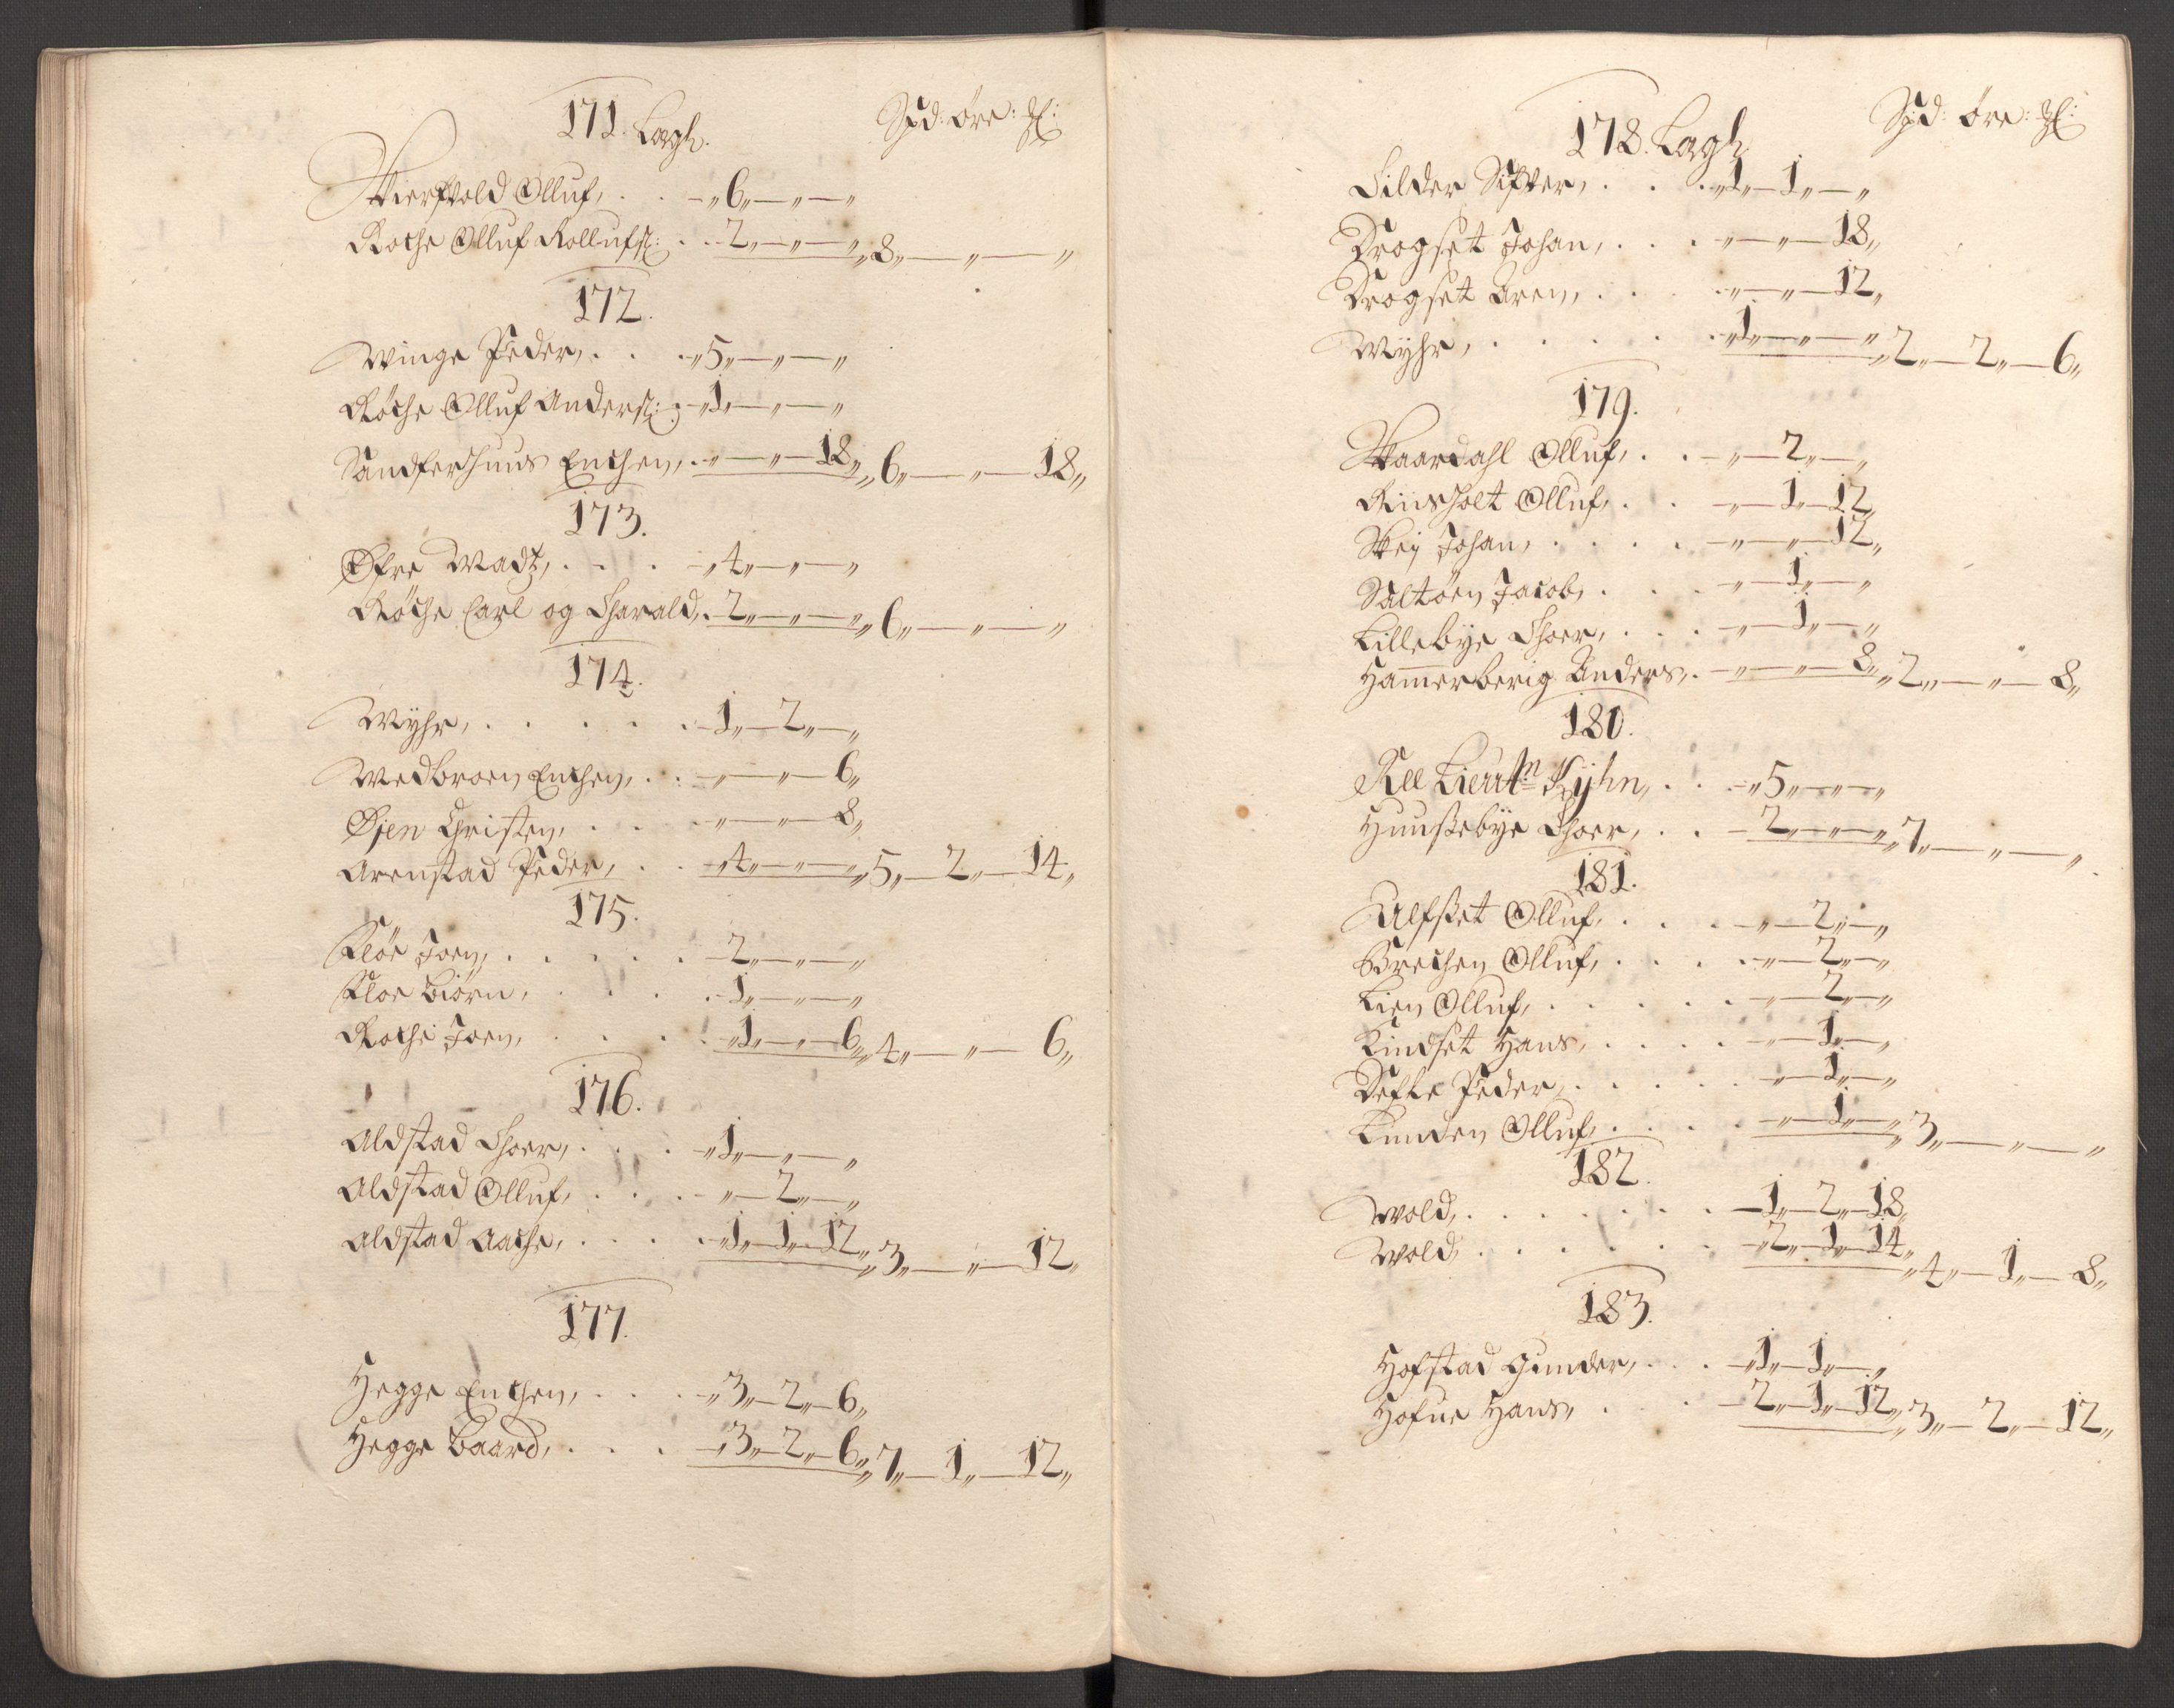 171. Lagh. Spd: öre: ₰:
Skierfvold Olluf, . . -„ 6„ — „ — „
Røche Olluf Rollufs: . . 2„ — „ — „ „ 8„ — „ — „
172.
Winge Peder, . . . „ 5„ — „ — „
Røche Olluf Anders: . „ 1„ — „ — „
Sandferhuus Enchen, . „ — „ — 18„ „ 6„ — „ — 18„
173.
Øfre Wadz, . . . „ 4„ — „ — „
Røche Carl og Harald, . 2„ — „ — „ „ 6„ — „ — „
174.
Myhr, . . . . . . 1„ — 2„ — „
Wedbroen Enchen, . . „ — „ — 6„
Øjen Christen, . . . „ — „ — 8„
Arenstad Peder, . . „ 4„ — „ — „ „ 5„ — 2„ — 14„
175.
Fløe Joen, . . . . . 2„ — „ — „
Floe Biörn, . . . . 1„ — „ — „
Roche Joen, . . . . „ 1„ — „ — 6„ „ 4„ — „ — 6„
176.
Aldstad Thoer, . . . „ 1„ — „ — „
Aldstad Olluf, . . . „ — 2„ — „
Aldstad Aache, . . . . „ 1„ — 1„ — 12„ „ 3„ — „ — 12„
177.
Hegge Enchen, . . . „ 3„ — 2„ — 6„
Hegge Baard, . . . „ 3„ — 2„ — 6„ „ 7„ — 1„ — 12„
178. Lagh Spd: öre: ₰:
Hilder Sifver, . . . „ 1„ — 1„ — „
Drogset Johan, . . . „ — „ — 18„
Drogset Aren, . . . „ — „ — 12„
Myhr, . . . . . „ 1„ — „ — „ „ 2„ — 2„ — 6„
179.
Skaardahl Olluf, . . „ — 2„ — „
Riisholt Olluf, . . „ — 1„ — 12„
Skej Johan, . . . . „ — „ — 12„
Saltöen Jacob, . . . „ — 1„ — „
Lillebye Thoer, . . . „ — 1„ — „
Hammerberig Anders, . „ — „ — 8„ „ 2„ — „ — 8„
180.
Lieutn Kyhn, . . „ 5„ — „ — „
Huussebye Thoer, . . 2„ — „ — „ „ 7„ — „ — „
181.
Ulfset Olluf, . . . . „ — 2„ — „
Brechen Olluf, . . . . „ — 2„ — „
Lien Olluf, . . . . . „ — 2„ — „
Kindset Hans, . . . . „ — 1„ — „
Defle Peder, . . . . . „ — 1„ — „
Lunden Olluf, . . . . „ — 1„ — „ „ 3„ — „ — „
182.
Wold, . . . . . . . 1„ — 2„ — 18„
Wold, . . . . . . 2„ — 1„ — 14„ „ 4„ — 1„ — 8„
183.
Hofstad Gunder, . . . „ 1„ — 1„ — „
Hofue Hans, . . . 2„ — 1„ — 12„ „ 3„ — 2„ — 12„